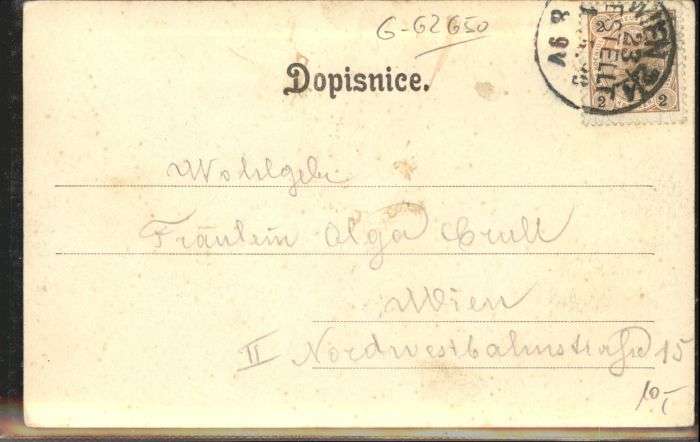 G-62650
Dopisnice.
WIEN 2/1
BESTELLT
8.9V
2 2 2
Wohlgeb.
Fräulein Olga Crull
Wien
II Nordwestbahnstraße 15
10,-